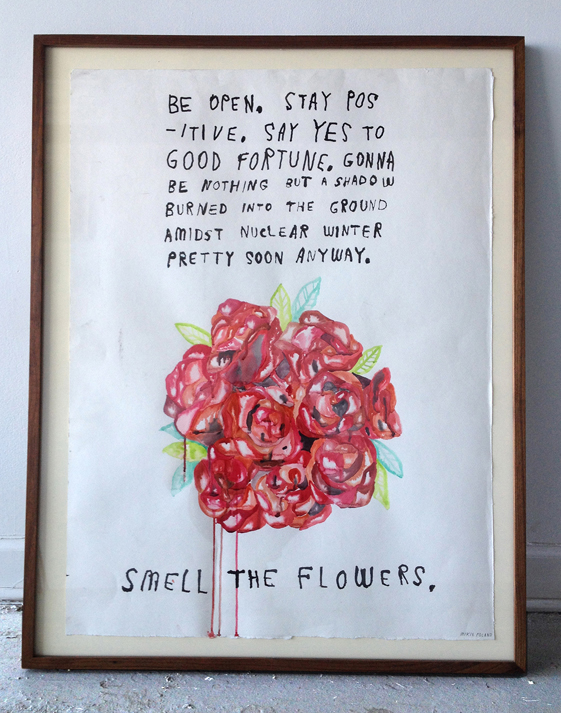 BE OPEN. STAY POS
-ITIVE. SAY YES TO
GOOD FORTUNE. GONNA
BE NOTHING BUT A SHADOW
BURNED INTO THE GROUND
AMIDST NUCLEAR WINTER
PRETTY SOON ANYWAY.
SMELL THE FLOWERS.